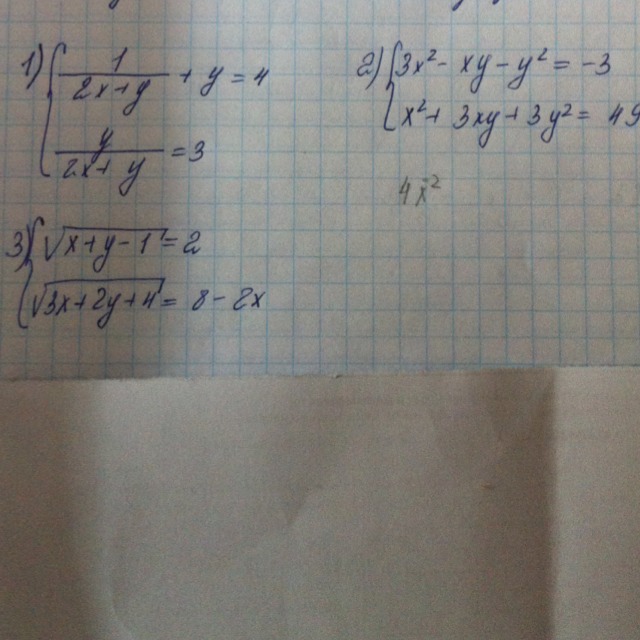 1) { 1/(2x+y) + y = 4
y/(2x+y) = 3
2) { 3x² - xy - y² = -3
x² + 3xy + 3y² = 49
4x²
3) { √(x+y-1) = 2
√(3x+2y+4) = 8 - 2x